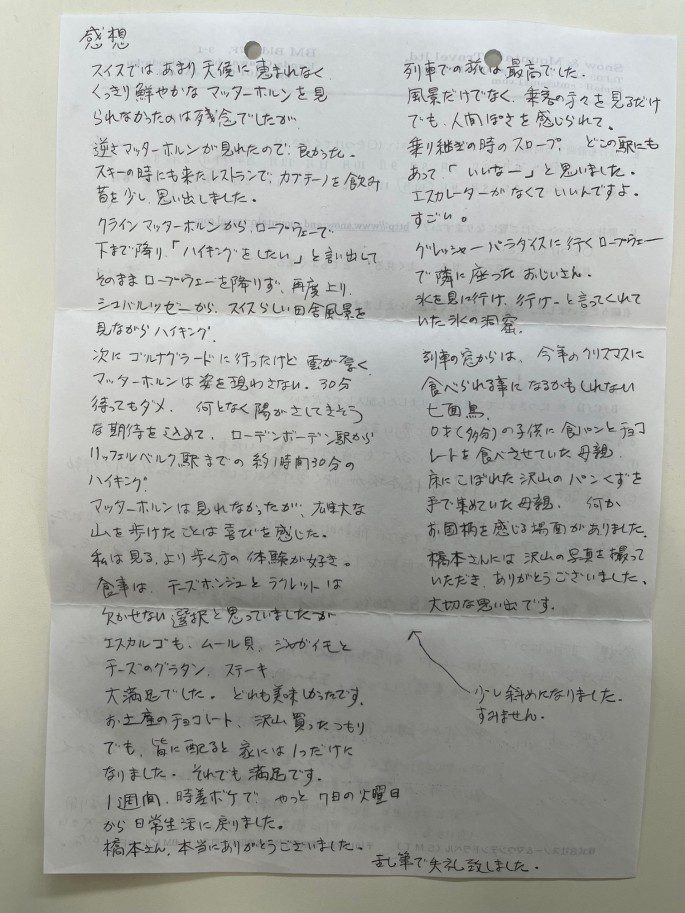 感想
スイスでは あまり 天候に恵まれなく
くっきり鮮やかな マッターホルンを見
られなかったのは残念でしたが
逆さマッターホルンが見れたので、良かった。
スキーの時にも来たレストランで、カプチーノを飲み
昔を少し、思い出しました。
クラインマッターホルンから、ロープウェーで、
下まで降り、「ハイキングをしたい」と言い出して
そのまま ロープウェーを降りず、再度上り、
シュバルツゼーから、スイスらしい田舎風景を
見ながらハイキング。
次に ゴルナグラードに行ったけど 雲が厚く、
マッターホルンは姿を現わさない。30分
待ってもダメ。何となく陽がさしてきそう
な期待を込めて、ローデンボーデン駅から
リッフェルベルク駅までの約1時間30分の
ハイキング。
マッターホルンは見れなかったが、雄大な
山を歩けたことは喜びを感じた。
私は見るより歩く方の体験が好き。
食事は、チーズホンジュとラクレットは
欠かせない選択と思っていましたが
エスカルゴも、ムール貝、ジャガイモと
チーズのグラタン、ステーキ
大満足でした。どれも美味しかったです。
お土産のチョコレート、沢山買ったつもり
でも、皆に配ると家には1つだけに
なりました。それでも満足です。
1週間、時差ボケで、やっと7日の火曜日
から日常生活に戻りました。
橋本さん、本当にありがとうございました。
列車での旅は最高でした。
風景だけでなく、乗客の方々を見るだけ
でも、人間ぽさを感じられて。
乗り継ぎの時のスロープ。どこの駅にも
あって「いいなー」と思いました。
エスカレーターがなくていいんですよ。
すごい。
グレッシャーパラダイスに行くロープウェー
で隣に座ったおじいさん。
氷を見に行け、行けーと言ってくれて
いた氷の洞窟。
列車の窓からは、今年のクリスマスに
食べられる事になるかもしれない
七面鳥。
0才(多分)の子供に食パンとチョコ
レートを食べさせていた母親。
床にこぼれた沢山のパンくずを
手で集めていた母親。何か
お国柄を感じる場面がありました。
橋本さんには沢山の写真を撮って
いただき、ありがとうございました。
大切な思い出です。
少し斜めになりました。
すみません。
乱筆で失礼致しました。